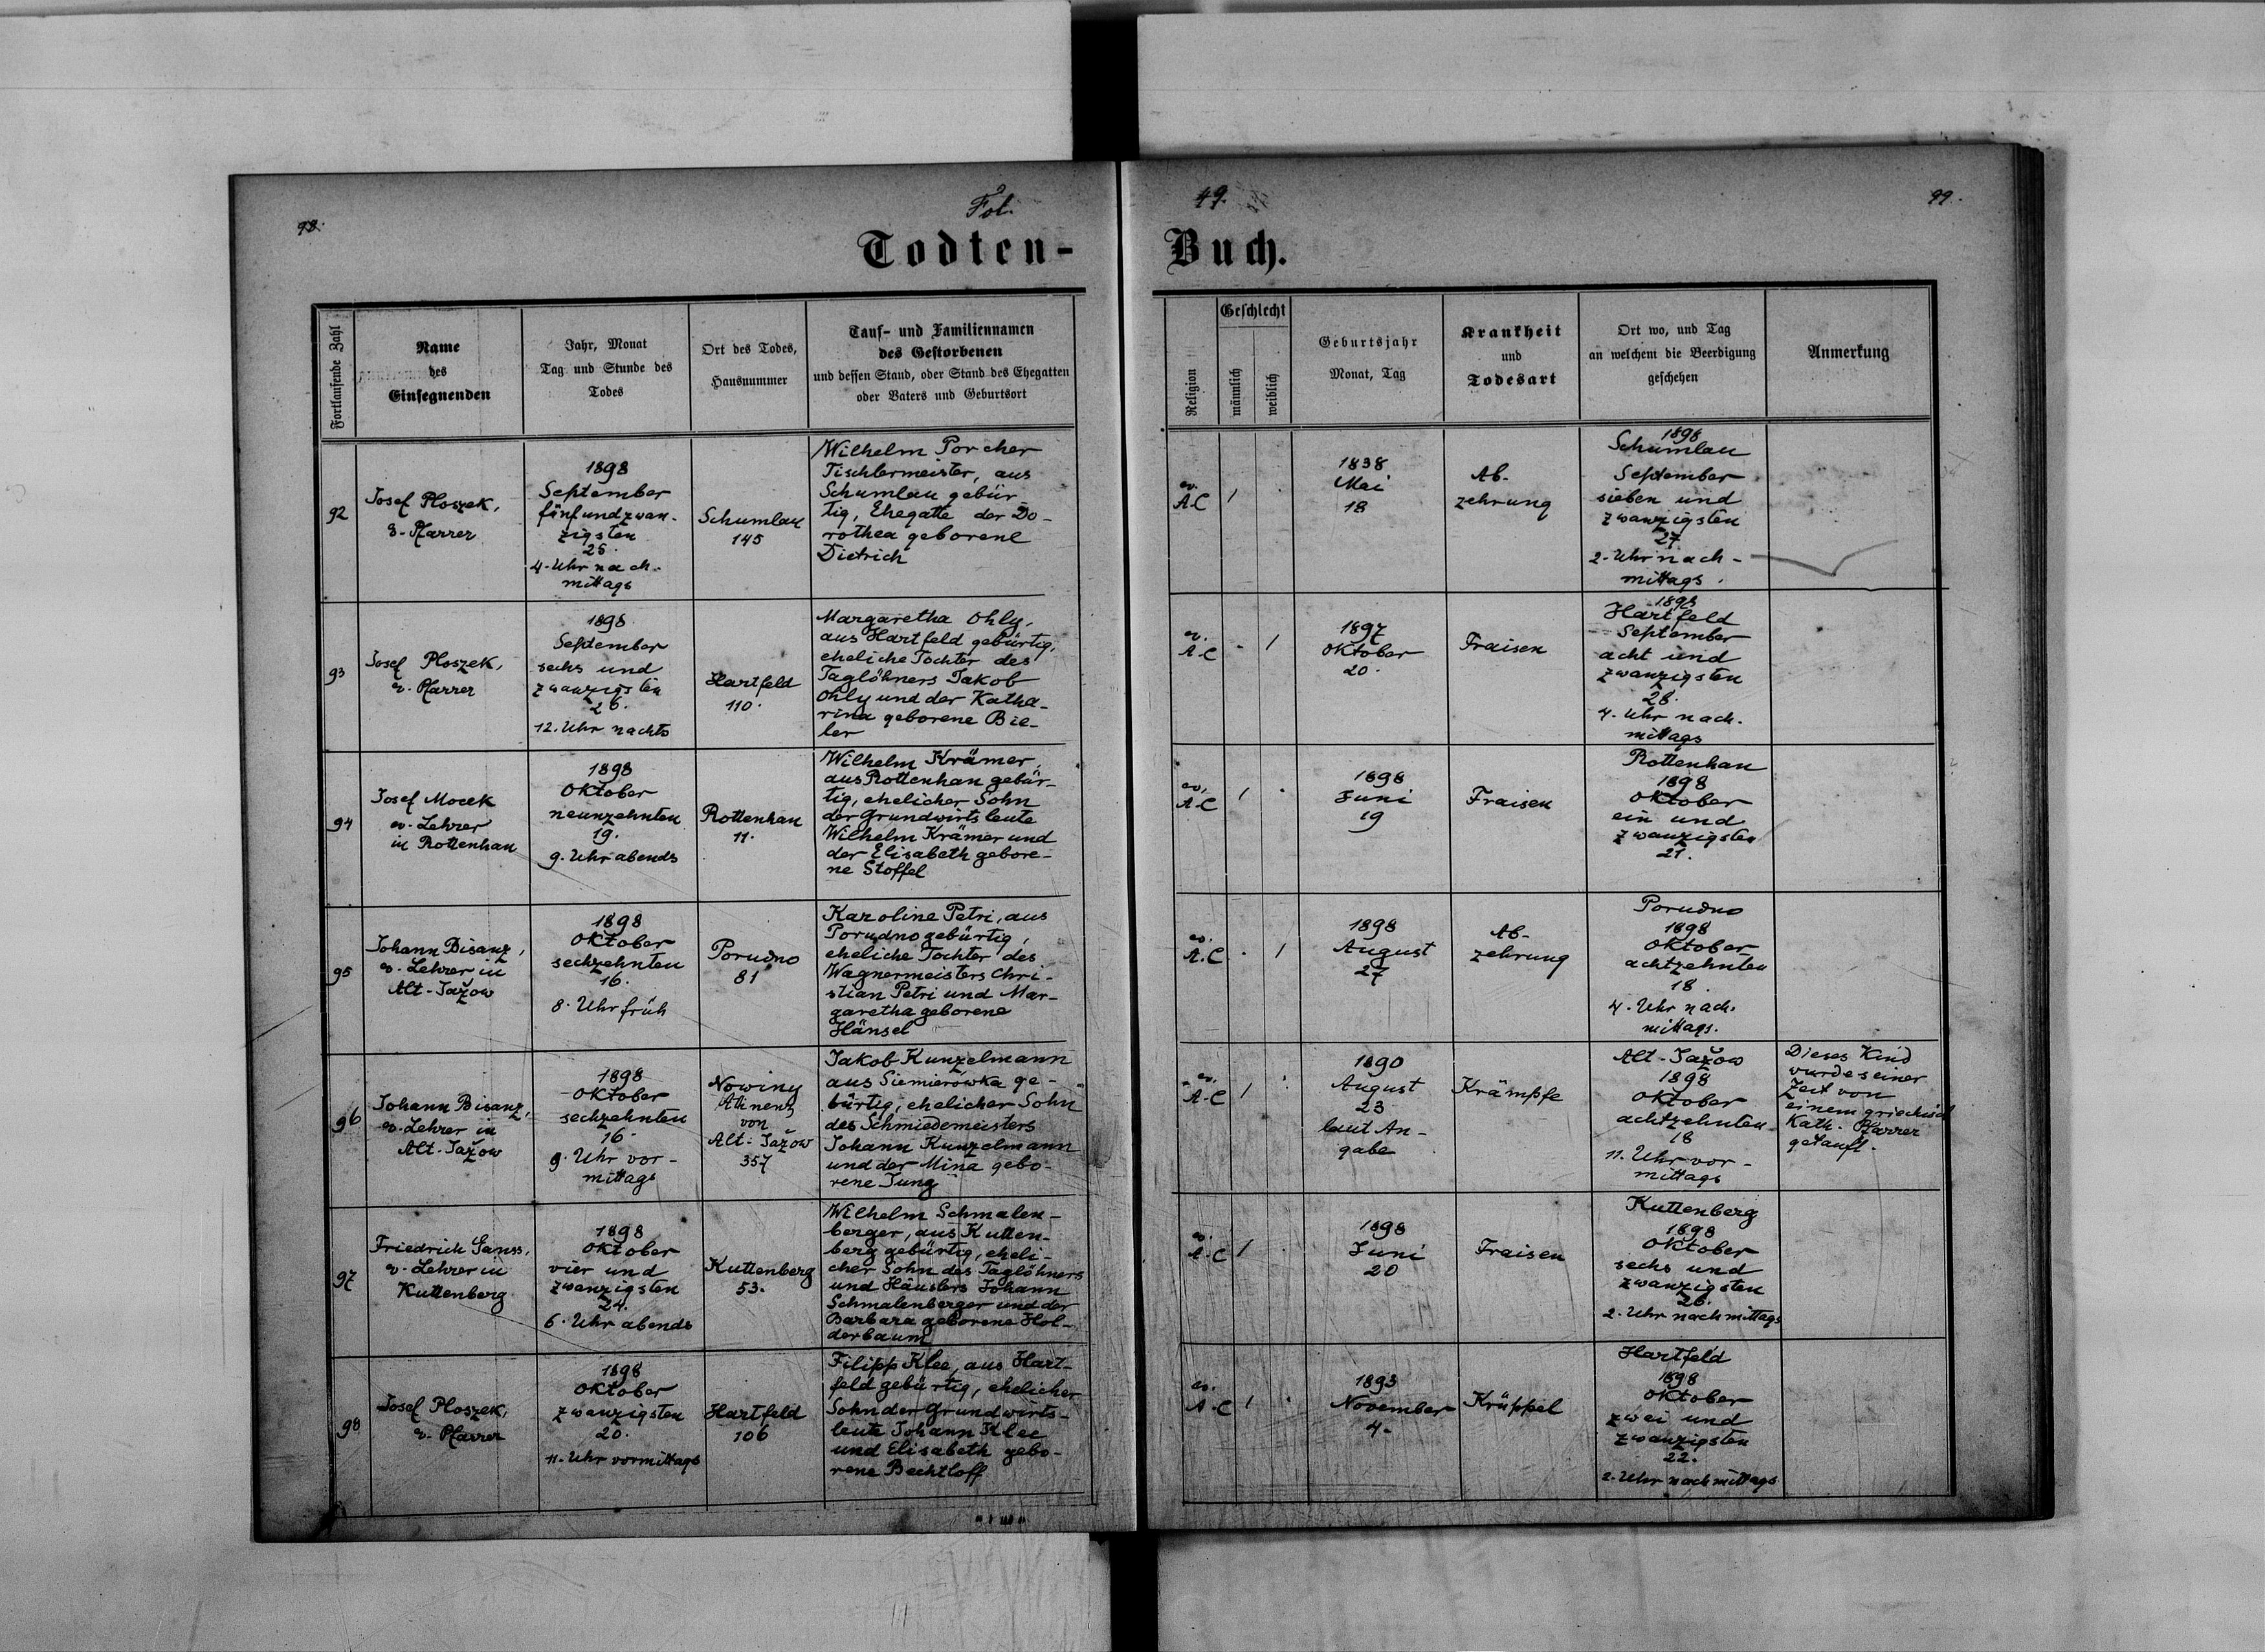 98.
Fol.
49.
99.
Todten-
Buch.
Fortlaufende Zahl
Name
des
Einsegnenden
Jahr, Monat
Tag und Stunde des
Todes
Ort des Todes,
Hausnummer
Tauf- und Familiennamen
des Gestorbenen
und dessen Stand, oder Stand des Ehegatten
oder Vaters und Geburtsort
Religion
Geschlecht
männlich
weiblich
Geburtsjahr
Monat, Tag
Krankheit
und
Todesart
Ort wo, und Tag
an welchem die Beerdigung
geschehen
Anmerkung
92
Josef Ploszek,
ev. Pfarrer
1898
September
fünfundzwan-
zigsten
25.
4. Uhr nach-
mittags
Schumlau
145
Wilhelm Porcher
Tischlermeister, aus
Schumlau gebür-
tig, Ehegatte der Do-
rothea geborene
Dietrich
ev.
A.C
1
1838
Mai
18
Ab-
zehrung
1898
Schumlau
September
sieben und
zwanzigsten
27
2. Uhr nach-
mittags.
93
Josef Ploszek,
ev. Pfarrer
1898
September
sechs und
zwanzigsten
26.
12. Uhr nachts
Hartfeld
110.
Margaretha Ohly,
aus Hartfeld gebürtig,
eheliche Tochter des
Taglöhners Jakob
Ohly und der Katha-
rina geborene Bie-
ler
ev.
A.C
-
1
1897
Oktober
20.
Fraisen
1898
Hartfeld
September
acht und
zwanzigsten
28.
4. Uhr nach-
mittags
94
Josef Mocek
ev. Lehrer
in Rottenhan
1898
Oktober
neunzehnten
19.
9. Uhr abends
Rottenhan
11.
Wilhelm Krämer,
aus Rottenhan gebür-
tig, ehelicher Sohn
der Grundwirtsleute
Wilhelm Krämer und
der Elisabeth gebore-
ne Stoffel
ev.
A.C
1
1898
Juni
19
Fraisen
Rottenhan
1898
Oktober
ein und
zwanzigsten
21.
95
Johann Bisanz,
ev. Lehrer in
Alt-Jażow
1898
Oktober
sechzehnten
16.
8. Uhr früh
Porudno
81
Karoline Petri, aus
Porudno gebürtig,
eheliche Tochter des
Wagnermeisters Chri-
stian Petri und Mar-
garetha geborene
Hänsel
ev.
A.C
.
1
1898
August
27
Ab-
zehrung
Porudno
1898
Oktober
achtzehnten
18.
4. Uhr nach-
mittags.
96
Johann Bisanz,
ev. Lehrer in
Alt-Jażow
1898
Oktober
sechzehnten
16.
9. Uhr vor-
mittags
Nowiny
Attinenz
von
Alt-Jażow
357
Jakob Kunzelmann
aus Siemierówka ge-
bürtig, ehelicher Sohn
des Schmiedemeisters
Johann Kunzelmann
und der Mina gebo-
rene Jung
ev.
A.C
1
1890
August
23
laut An-
gabe
Krämpfe
Alt-Jażow
1898
Oktober
achtzehnten
18
11. Uhr vor-
mittags
Dieses Kind
wurde seiner
Zeit von
einem griechisch
Kath. Pfarrer
getauft.
97
Friedrich Ganss,
ev. Lehrer in
Kuttenberg
1898
Oktober
vier und
zwanzigsten
24.
6. Uhr abends
Kuttenberg
53.
Wilhelm Schmalen-
berger, aus Kutten-
berg gebürtig, eheli-
cher Sohn des Taglöhners
und Häuslers Johann
Schmalenberger und der
Barbara geborene Hol-
derbaum
ev.
A.C
1
1898
Juni
20
Fraisen
Kuttenberg
1898
Oktober
sechs und
zwanzigsten
26.
2. Uhr nachmittags
98
Josef Ploszek,
ev. Pfarrer
1898
Oktober
zwanzigsten
20.
11. Uhr vormittags
Hartfeld
106
Filipp Klee, aus Hart-
feld gebürtig, ehelicher
Sohn der Grundwirts-
leute Johann Klee
und Elisabeth gebo-
rene Bechtloff
ev.
A.C
1
1893
November
4.
Krüppel
Hartfeld
1898
Oktober
zwei und
zwanzigsten
22.
2. Uhr nachmittags